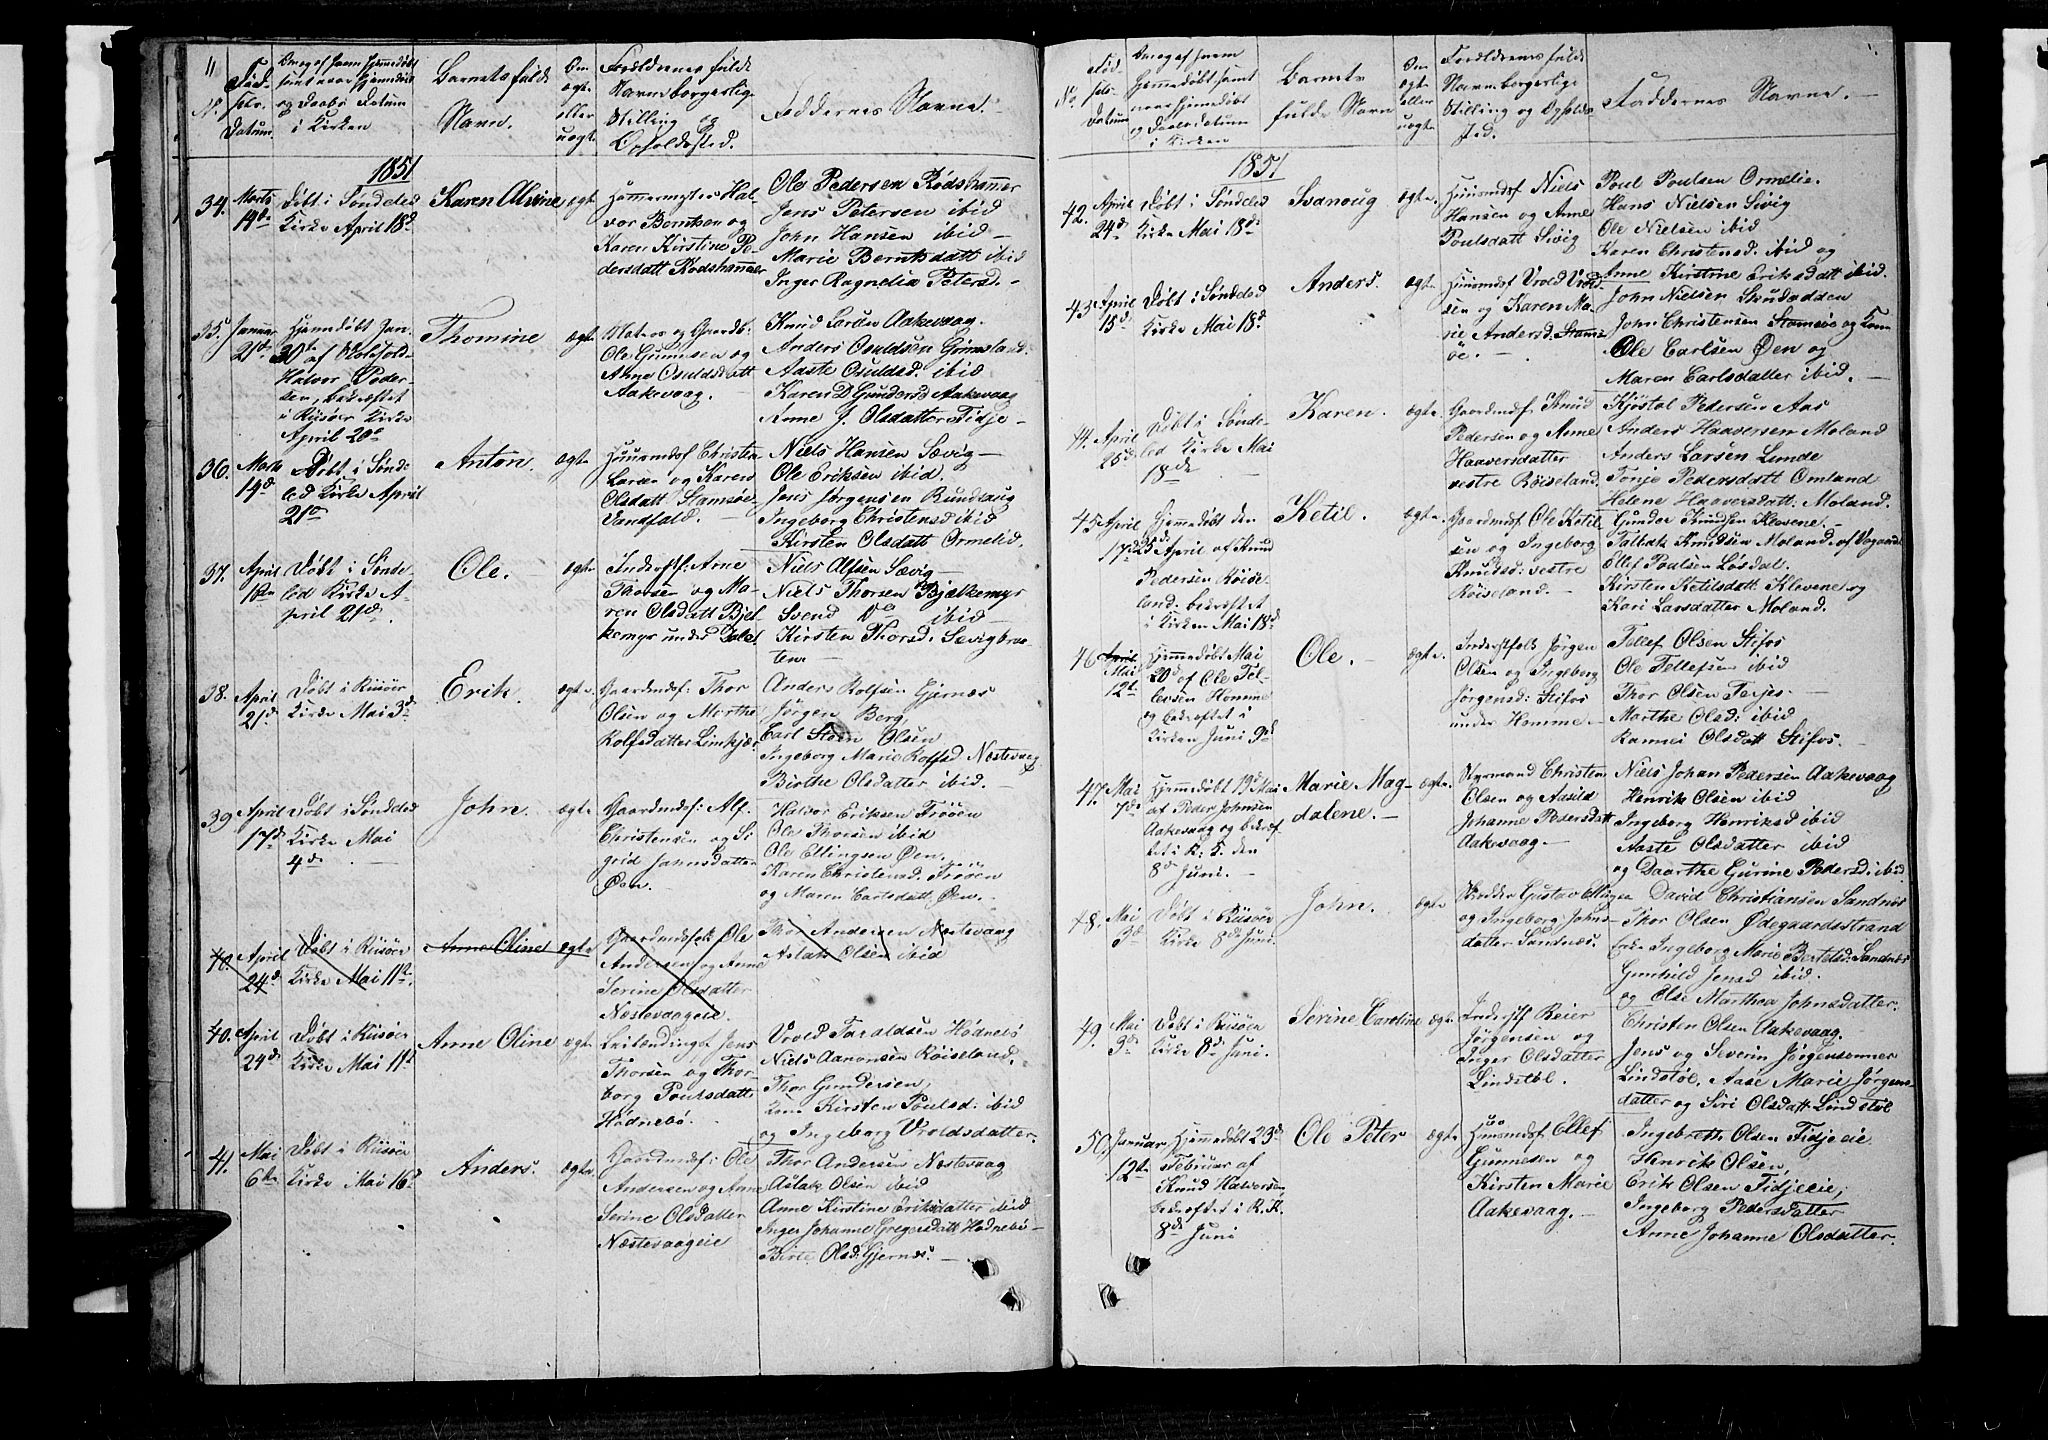 11
N.
Fød-
sels-
Datum.
og Daabs Datum
i Kirken
Barnets fulde
Navn.
Om
ægte
eller
uægte
Forældrenes fulde
Navn borgerlige
Stilling og
Opholdssted.
Faddernes Navne.
1851
34.
Marts
19de
Døbt i Søndeled
Kirke April 18d
Karen Alvine
ægte
Hammermester Hal-
vor Berntsen og
Karen Kirstine Pe-
dersdatt Rødshammer
Ole Pedersen Rødshammer
Jens Petersen ibid
John Hansen ibid
Marie Berntsdatt ibid
Inger Ragnelia Petersd.
35.
Januar
21de
Hjemmedøbt Jan.
30te af
Halvor Peder-
sen, bekræftet
i Riisøer Kirke
April 20de
Thomine
ægte
Matros og Gaardb:
Ole Gunnesen og
Anne Osuldsdatt
Aakevaag.
Knud Larsen Aakevaag.
Anders Osuldsen Gimsland.
Aaste Osuldsd. ibid
Karen D Gundersd Aakevaag
Anne J. Olsdatter Tidje
36.
Marts
14d
Døbt i Sønde-
led Kirke April
21de
Anton.
ægte
Huusmdsf Christen
Larsen og Karen
Olsdatt Stamsøe
Sandfald.
Niels Hansen Sævig
Ole Eriksen ibid
Jens Jørgensen Rundsaug
Ingeborg Christensd ibid
Kirsten Olsdatt Ormelid.
37.
April
1ste
Døbt i Sønde-
led Kirke A-
pril 21de
Ole.
ægte
Inderstf: Arne
Thorsen og Ma-
ren Olsdatt Bjel-
kemyr under
Niels Alfsen Sævig
Niels Thorsen Bjelkemyr
Svend Do ibid
Kirsten Thorsd. Sævigbraa-
ten.
38.
April
21d
Døbt i Riisøer
Kirke Mai 3d
Erik
ægte
Gaardmdsf: Thor
Olsen og Marthe
Rolfsdatter Limkjær
Anders Rolfsen Gjernæs
Jørgen Berg,
Carl Steen Olsen
Ingeborg Marie Rolfsd Næstevaag
Birthe Olsdatter ibid.
39
April
17d
Døbt i Søndeled
Kirke Mai
4de
John.
ægte
Gaardmdsf: Alf
Christensen og Si-
grid Jahnsdatter
Øen.
Halvor Eriksen Frøen
Ole Thorsen ibid
Ole Ellingsen Øen.
Karen Christensd: Frøen
og Maren Carlsdatt Øen.
40.
April
24d
Døbt i Riisøer
Kirke Mai 11te.
Anne Oline
ægte
Gaardmdsfolk Ole
Andersen og Anne
Serine Olsdatter
Næstevaageie.
Thor Andersen Næstevaag
Aslak Olsen ibid
40.
April
24de
Døbt i Riisøer
Kirke Mai 11te
Anne Oline
ægte
Leilændingsf Jens
Thorsen og Thor-
borg Poulsdatt
Hødnebø.
Vrold Taraldsen Hødnebø
Niels Aanonsen Røiseland.
Thor Gundersen,
Kone Kirsten Poulsd: ibid
og Ingeborg Vroldsdatter
41.
Mai
6te
Døbt i Riisøer
Kirke Mai 16d
Anders.
ægte
Gaardmdsf: Ole
Andersen og Anne
Serine Olsdatter
Næstevaageie
Thor Andersen Næstevaag
Aslak Olsen ibid
Anne Kirstine Eriksdatter ibid
Inger Johanne Gregersdatt Hødnebø
Birte Olsd: Gjernæs.
No
Fød-
sels-
Datum
Hjemmedøbt, samt
naar Hjemmedøbt
og Daabsdatum
i Kirken
Barnets
fulde Navn
Om
ægte
eller
uægte
Forældrenes fulde
Navn borgerlige
Stilling og Opholds-
sted.
Faddernes Navne.
1851
42.
April
24d.
Døbt i Søndeled
Kirke Mai 18d.
Svanoug
ægte.
Huusmdsf Niels
Hansen og Anne
Poulsdatt Sivig
Poul Poulsen Ormelie.
Hans Nielsen Sivig
Ole Nielsen ibid
Karen Christensd. ibid og
Anne Kirstine Eriksdatt ibid.
43
April
15d
Døbt i Søndeled
Kirke Mai 18d.
Anders.
ægte.
Huusmdsf Vrold Vrold-
sen og Karen Ma-
rie Andersd. Stams-
øe.
John Nielsen Skudodden
John Christensen Stamsøe og Kone
Ole Carlsen Øen og
Maren Carlsdatter ibid.
44.
April
25d
Døbt i Sønde-
led Kirke Mai
18de
Karen.
ægte.
Gaardmdsf. Knud
Pedersen og Anne
Haaversdatter
vestre Røiseland.
Kjøstol Pedersen Aas
Anders Haaversen Moland
Anders Larsen Lunde
Tonje Pedersdatt Omland
Helene Haaversdatt: Moland.
45
April
17d
Hjemmedøbt den
25d April af Knud
Pedersen Røise-
land. bekræftet
i Kirken Mai 18d
Ketil.
ægte.
Gaardmdsf Ole Ketil-
sen og Ingeborg
Knudsd: vestre
Røiseland.
Gunder Knudsen Klevene.
Talbak Knudsen Moland. af
Ellef Poulsen Løsdal.
Kirsten Ketilsdatt Klevene og
Kari Larsdatter Moland.
46
April
Mai
12t.
Hjemmedøbt Mai
20d af Ole Tel-
levsen Homme
og bekræftet i
Kirken Juni 9d
Ole.
ægte.
Inderstfolk Jørgen
Olsen og Ingeborg
Jørgensd: Stifos
under Homme.
Tellef Olsen Stifos
Ole Tellefsen ibid
Thor Olsen Terjes.
Marthe Olsd: ibid
Rannei Olsdatt Stifos.
47.
Mai
7de
Hjemmedøbt 19d Mai
af Peder Johnsen
Aakevaag og bekræf-
tet i R: K. den
8d Juni.
Marie Mag-
dalene.
ægte.
Styrmand Christen
Olsen og Aasild
Johanne Pedersdatt
Aakevaag.
Niels Johan Pedersen Aakevaag
Henrik Olsen ibid
Ingeborg Henriksd ibid
Aaste Olsdatter ibid
og Daarthe Gurine Pedersd: ibid
48.
Mai
3d
Døbt i Riisøer
Kirke 8de Juni.
John.
ægte
Gustav Ellingsen
og Ingeborg Johns-
datter Sandnæs.
David Christiansen Sandnæs
Thor Olsen Ødegaardsstrand
Ingeborg Marie Bertelsd: Sandnæs
Gunhild Jensd ibid.
og Else Marthea Johnsdatter.
49.
Mai
3de
Døbt i Riisøer
Kirke 8d: Juni.
Serine Caroline
ægte.
Inderstf Reier
Jørgensen og
Inger Olsdatter
Lindstøl.
Christen Olsen Aakevaag.
Jens og Severin Jørgensønner
Lindstøl, Aase Marie Jørgens-
datter og Siri Olsdatt Lindstøl
50.
Januar
12te
Hjemmedøbt 23de
Februar af
Knud Halvorsen
bekræftet i R. K.
8de Juni
Ole Peter
ægte
Huusmdsf Ellef
Gunnesen og
Kirsten Marie
Aakevaag.
Ingebreth Olsen Tidjeeie
Henrik Olsen,
Erik Olsen Tidjeeie,
Ingeborg Pedersdatter
Anne Johanne Olsdatter.